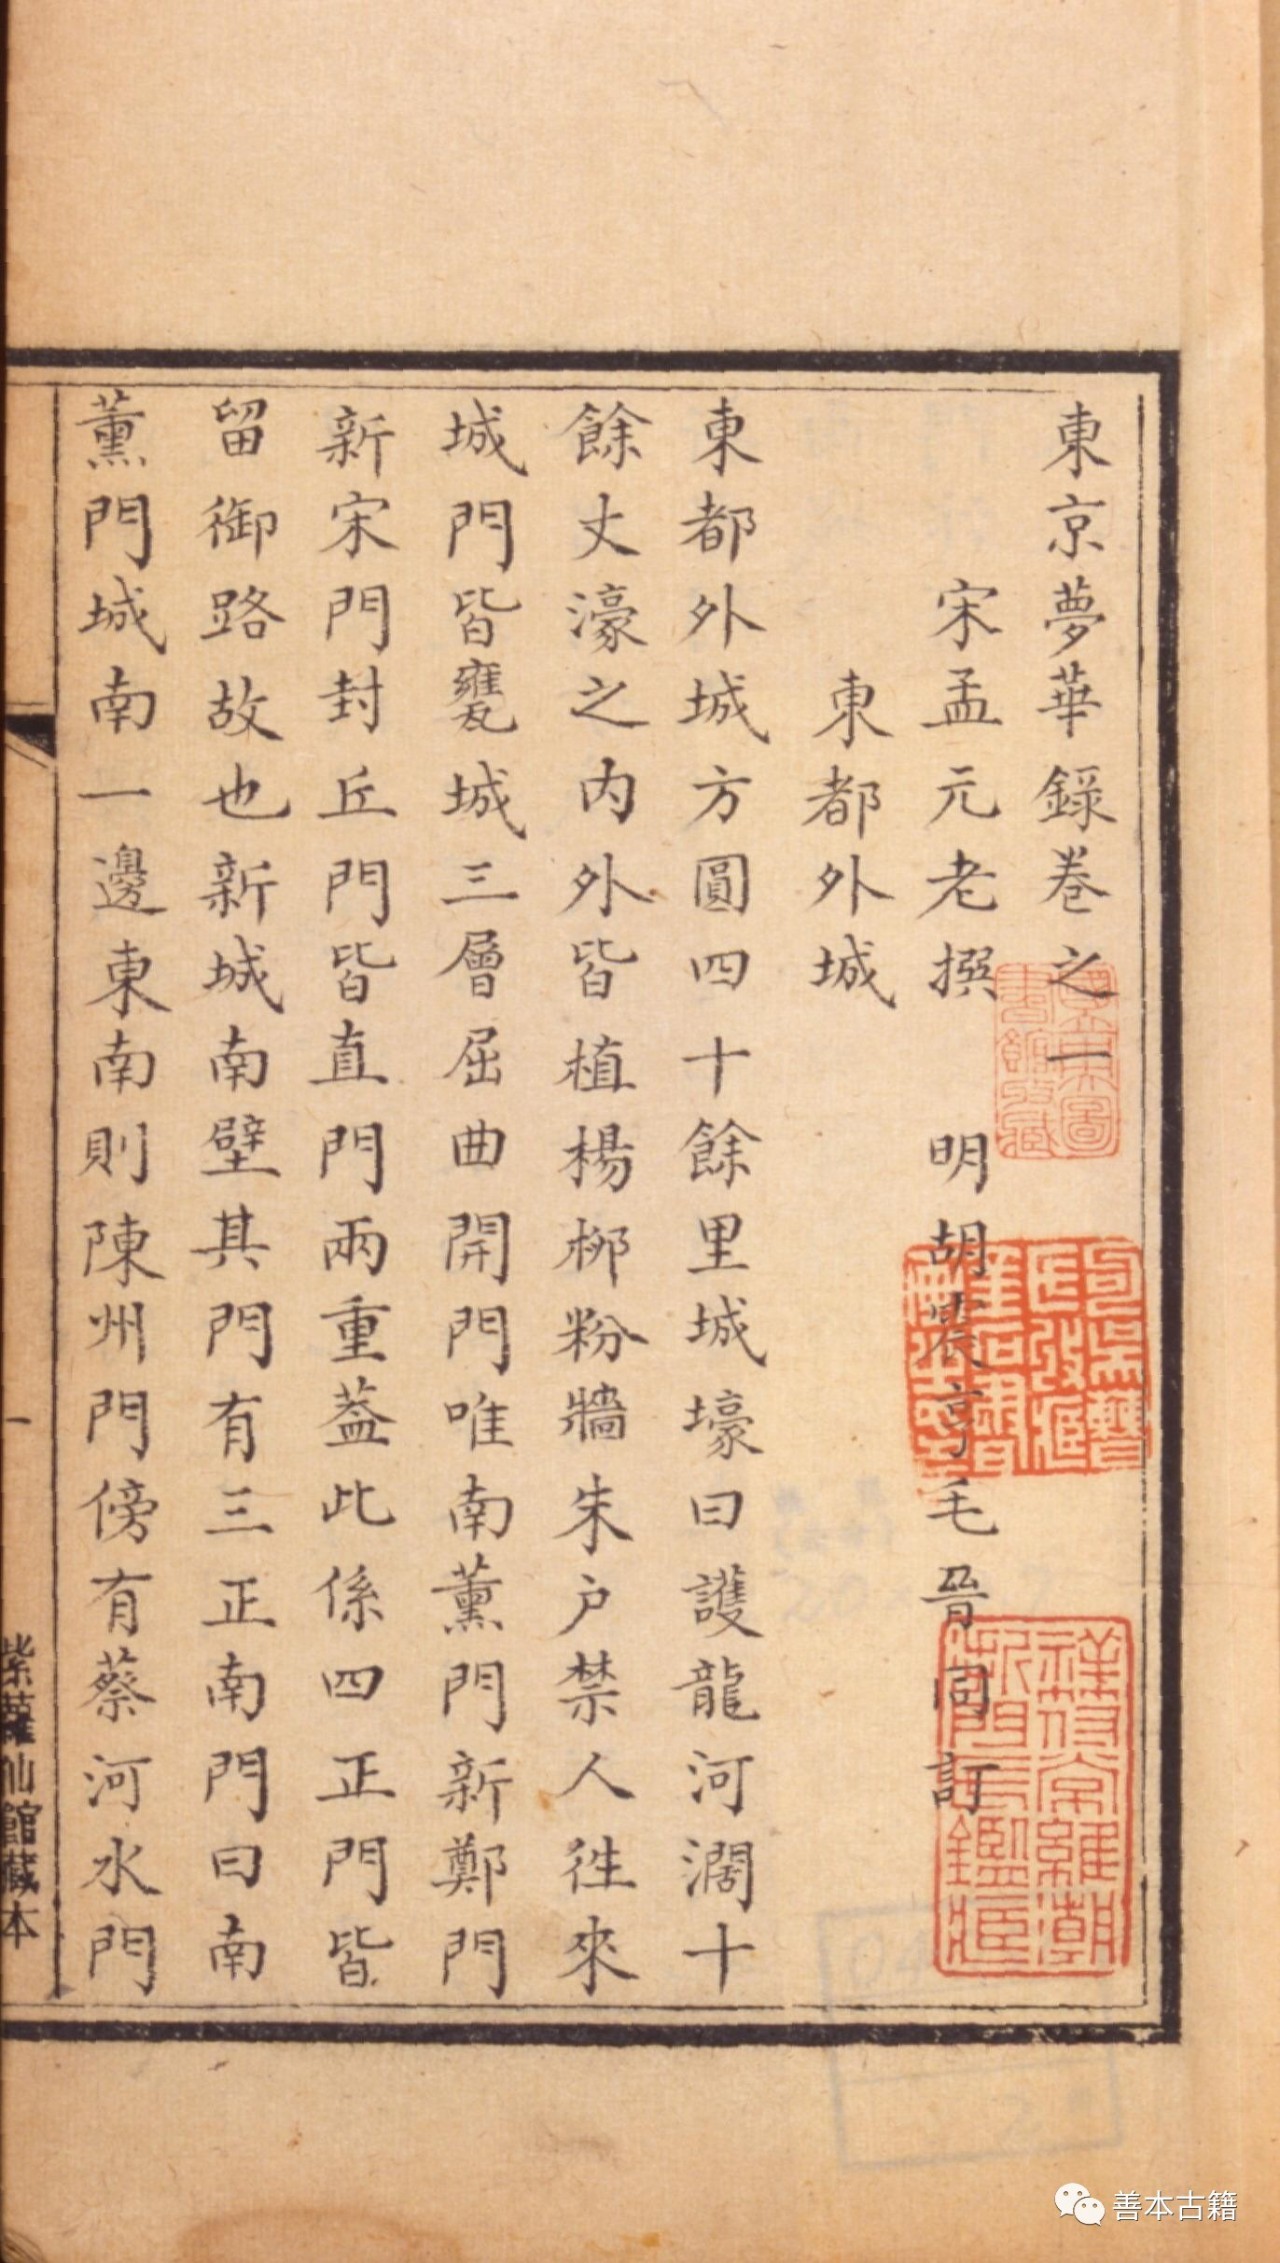 東京夢華錄卷之一
宋孟元老撰　明胡震亨毛晉同訂
東都外城
東都外城方圓四十餘里城壕曰護龍河濶十
餘丈濠之內外皆植楊栁粉牆朱户禁人徃來
城門皆甕城三層屈曲開門唯南薫門新鄭門
新宋門封丘門皆直門兩重葢此係四正門皆
留御路故也新城南壁其門有三正南門曰南
薫門城南一邊東南則陳州門傍有蔡河水門
一
紫蘿仙館藏本
祥符常維潮
圖
書館收藏
善本古籍